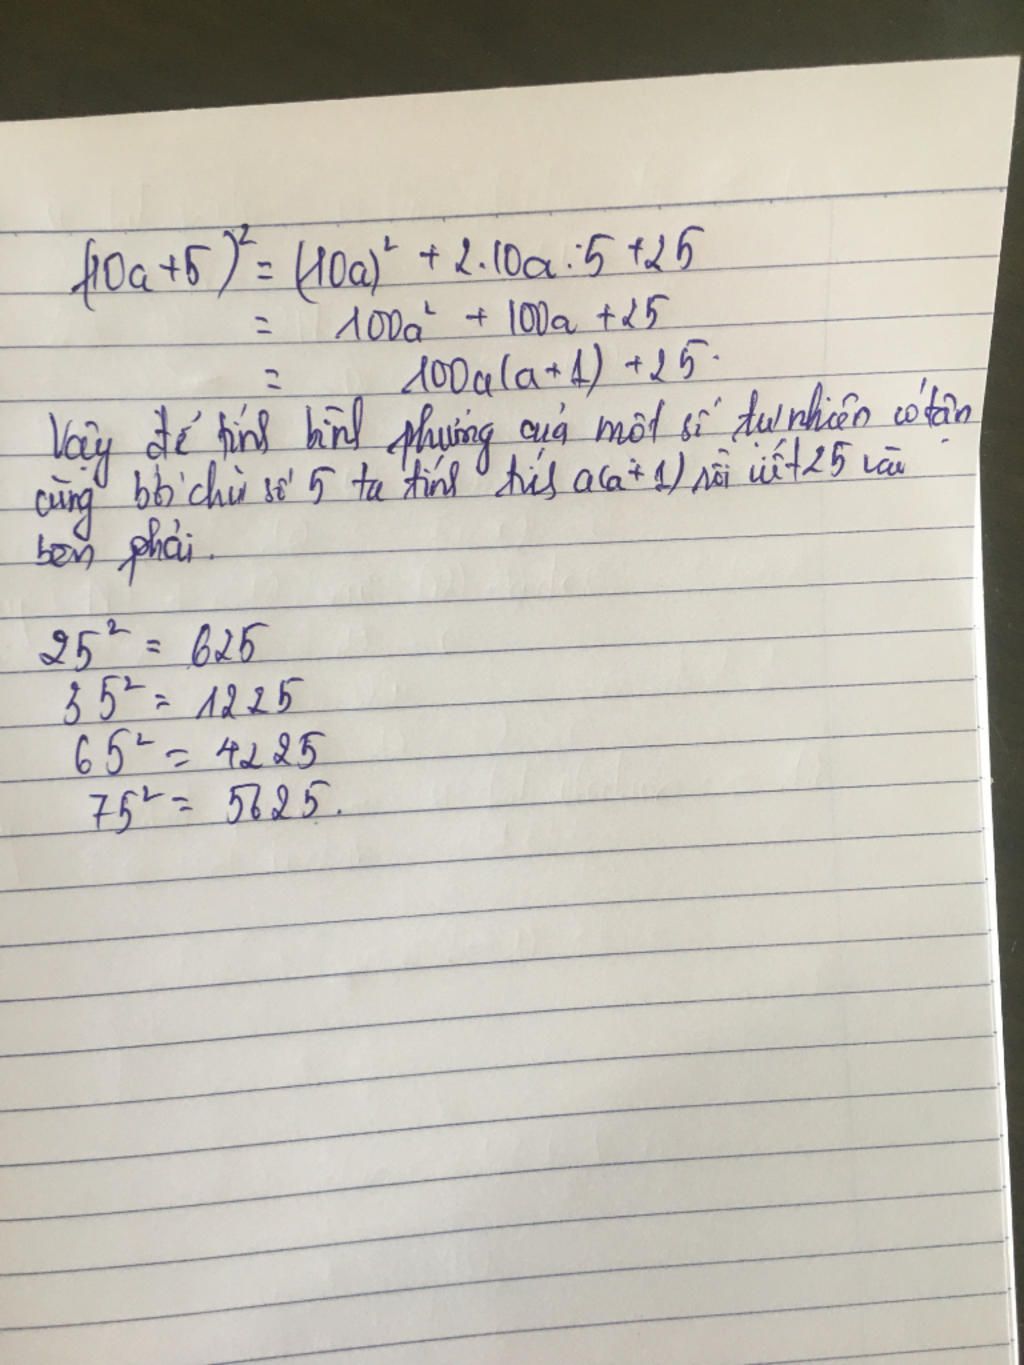 (10a+5)² = (10a)² + 2.10a.5 +25
= 100a² + 100a +25
= 100a(a+1) +25.
Vậy để tính bình phương của một số tự nhiên có tận
cùng bởi chữ số 5 ta tính tích a(a+1) rồi viết 25 vào
bên phải.
25² = 625
35² = 1225
65² = 4225
75² = 5625.